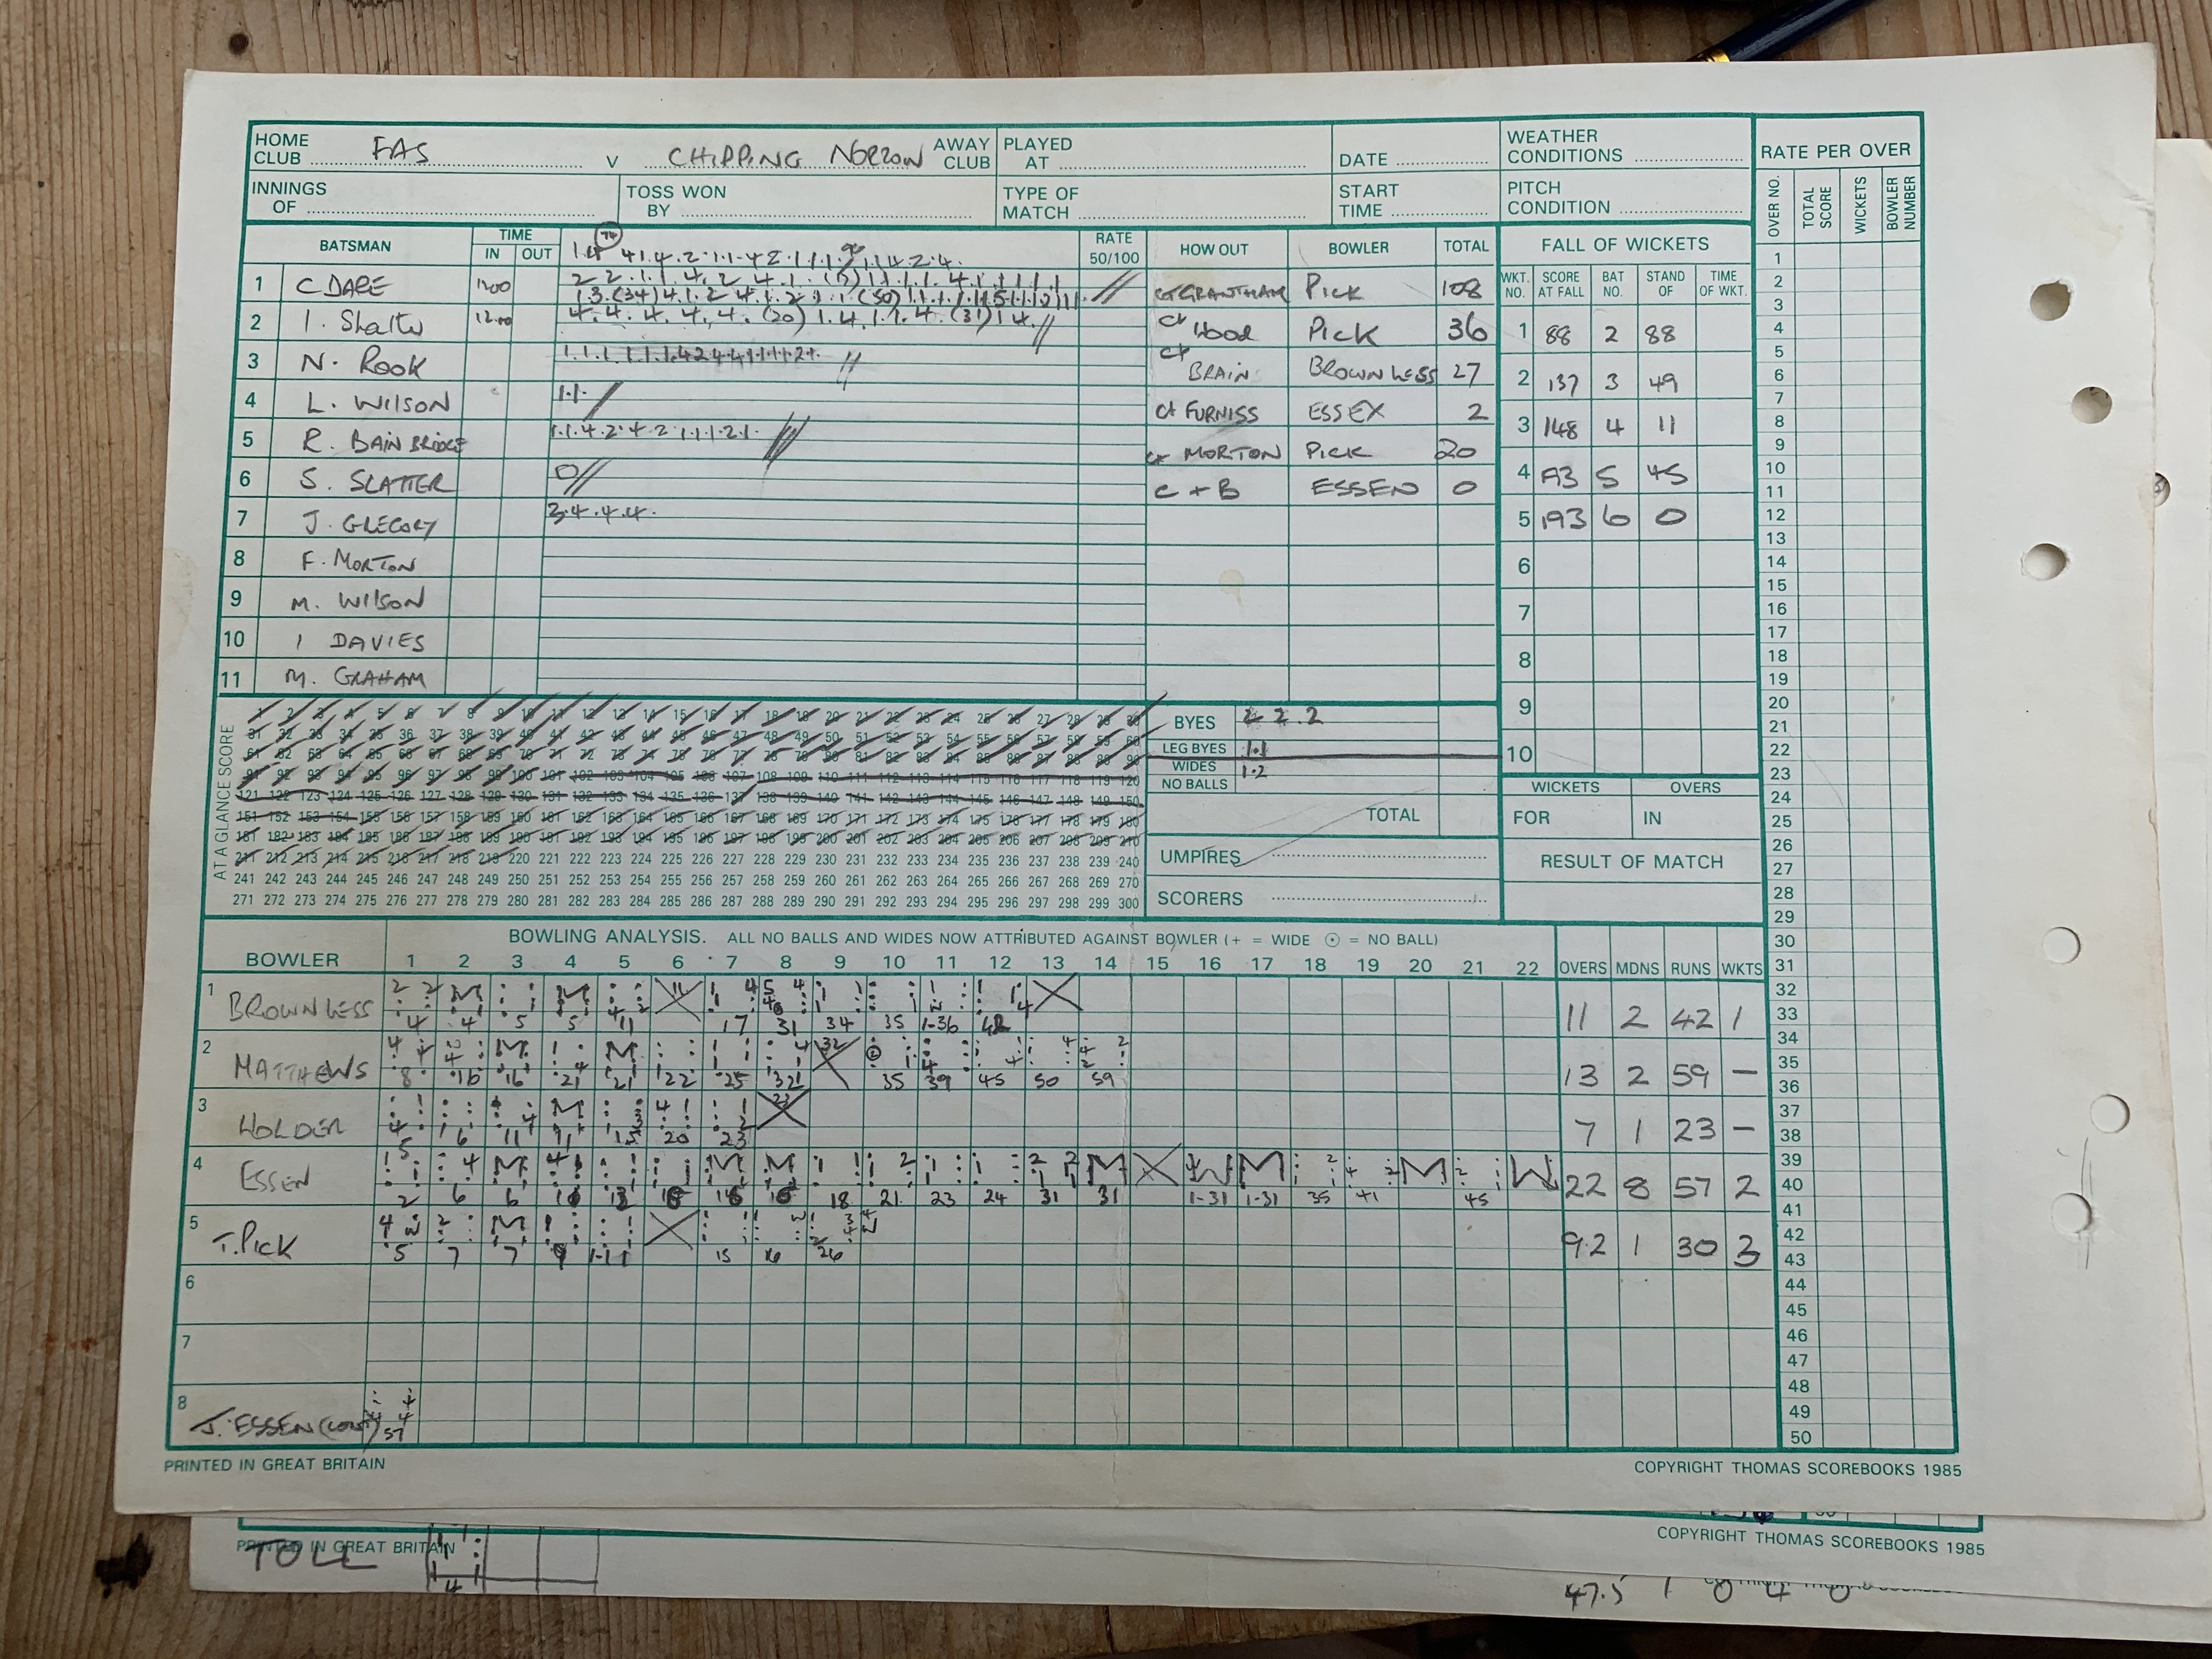 HOME CLUB FAS V CHIPPING NORTON AWAY CLUB PLAYED AT DATE WEATHER CONDITIONS RATE PER OVER
INNINGS OF TOSS WON BY TYPE OF MATCH START TIME PITCH CONDITION
OVER NO. TOTAL SCORE WICKETS BOWLER NUMBER
BATSMAN TIME IN OUT RATE 50/100 HOW OUT BOWLER TOTAL FALL OF WICKETS
WKT. NO. SCORE AT FALL BAT NO. STAND OF TIME OF WKT.
1 C. DARE 12.00 ct GRANTHAM PICK 108
2 I. 12.00 4.4.4.4.4.(20) 1.4.1.1.4.(31) 1 4. ct WOOD PICK 36
3 N. ROOK ct BRAIN BROWNLESS 27
4 L. WILSON 1.1. ct FURNISS ESSEX 2
5 R. BAINBRIDGE 1.1.4.2.4.2.1.1.1.2.1. ct MORTON PICK 20
6 S. SLATTER 0 C + B ESSEN 0
7 J. GREGORY 3.4.4.4.
8 F. MORTON
9 M. WILSON
10 I DAVIES
11 M. GRAHAM
1 88 2 88
2 137 3 49
3 148 4 11
4 193 5 45
5 193 6 0
6
7
8
9
10
AT A GLANCE SCORE
1 2 3 4 5 6 7 8 9 10 11 12 13 14 15 16 17 18 19 20 21 22 23 24 25 26 27 28 29 30
31 32 33 34 35 36 37 38 39 40 41 42 43 44 45 46 47 48 49 50 51 52 53 54 55 56 57 58 59 60
61 62 63 64 65 66 67 68 69 70 71 72 73 74 75 76 77 78 79 80 81 82 83 84 85 86 87 88 89 90
91 92 93 94 95 96 97 98 99 100 101 102 103 104 105 106 107 108 109 110 111 112 113 114 115 116 117 118 119 120
121 122 123 124 125 126 127 128 129 130 131 132 133 134 135 136 137 138 139 140 141 142 143 144 145 146 147 148 149 150
151 152 153 154 155 156 157 158 159 160 161 162 163 164 165 166 167 168 169 170 171 172 173 174 175 176 177 178 179 180
181 182 183 184 185 186 187 188 189 190 191 192 193 194 195 196 197 198 199 200 201 202 203 204 205 206 207 208 209 210
211 212 213 214 215 216 217 218 219 220 221 222 223 224 225 226 227 228 229 230 231 232 233 234 235 236 237 238 239 240
241 242 243 244 245 246 247 248 249 250 251 252 253 254 255 256 257 258 259 260 261 262 263 264 265 266 267 268 269 270
271 272 273 274 275 276 277 278 279 280 281 282 283 284 285 286 287 288 289 290 291 292 293 294 295 296 297 298 299 300
BYES 2.2
LEG BYES 1.1
WIDES 1.2
NO BALLS
TOTAL
UMPIRES
SCORERS
WICKETS OVERS
FOR IN
RESULT OF MATCH
BOWLING ANALYSIS. ALL NO BALLS AND WIDES NOW ATTRIBUTED AGAINST BOWLER (+ = WIDE ⊙ = NO BALL)
BOWLER 1 2 3 4 5 6 7 8 9 10 11 12 13 14 15 16 17 18 19 20 21 22 OVERS MDNS RUNS WKTS
1 BROWNLESS 4 4 5 5 11 17 31 34 35 1-36 42 11 2 42 1
2 MATTHEWS 8 16 16 21 21 22 25 32 35 39 45 50 59 13 2 59 -
3 HOLDER 5 6 11 11 15 20 23 7 1 23 -
4 ESSEN 2 6 6 18 21 23 24 31 31 1-31 1-31 35 41 45 W 22 8 57 2
5 T. PICK 5 7 7 9 1-11 15 16 26 9.2 1 30 3
6
7
8 J. ESSEN (CONT) 57
1
2
3
4
5
6
7
8
9
10
11
12
13
14
15
16
17
18
19
20
21
22
23
24
25
26
27
28
29
30
31
32
33
34
35
36
37
38
39
40
41
42
43
44
45
46
47
48
49
50
PRINTED IN GREAT BRITAIN COPYRIGHT THOMAS SCOREBOOKS 1985
PRINTED IN GREAT BRITAIN COPYRIGHT THOMAS SCOREBOOKS 1985
TOLL 4
47.5 1 0 4 0